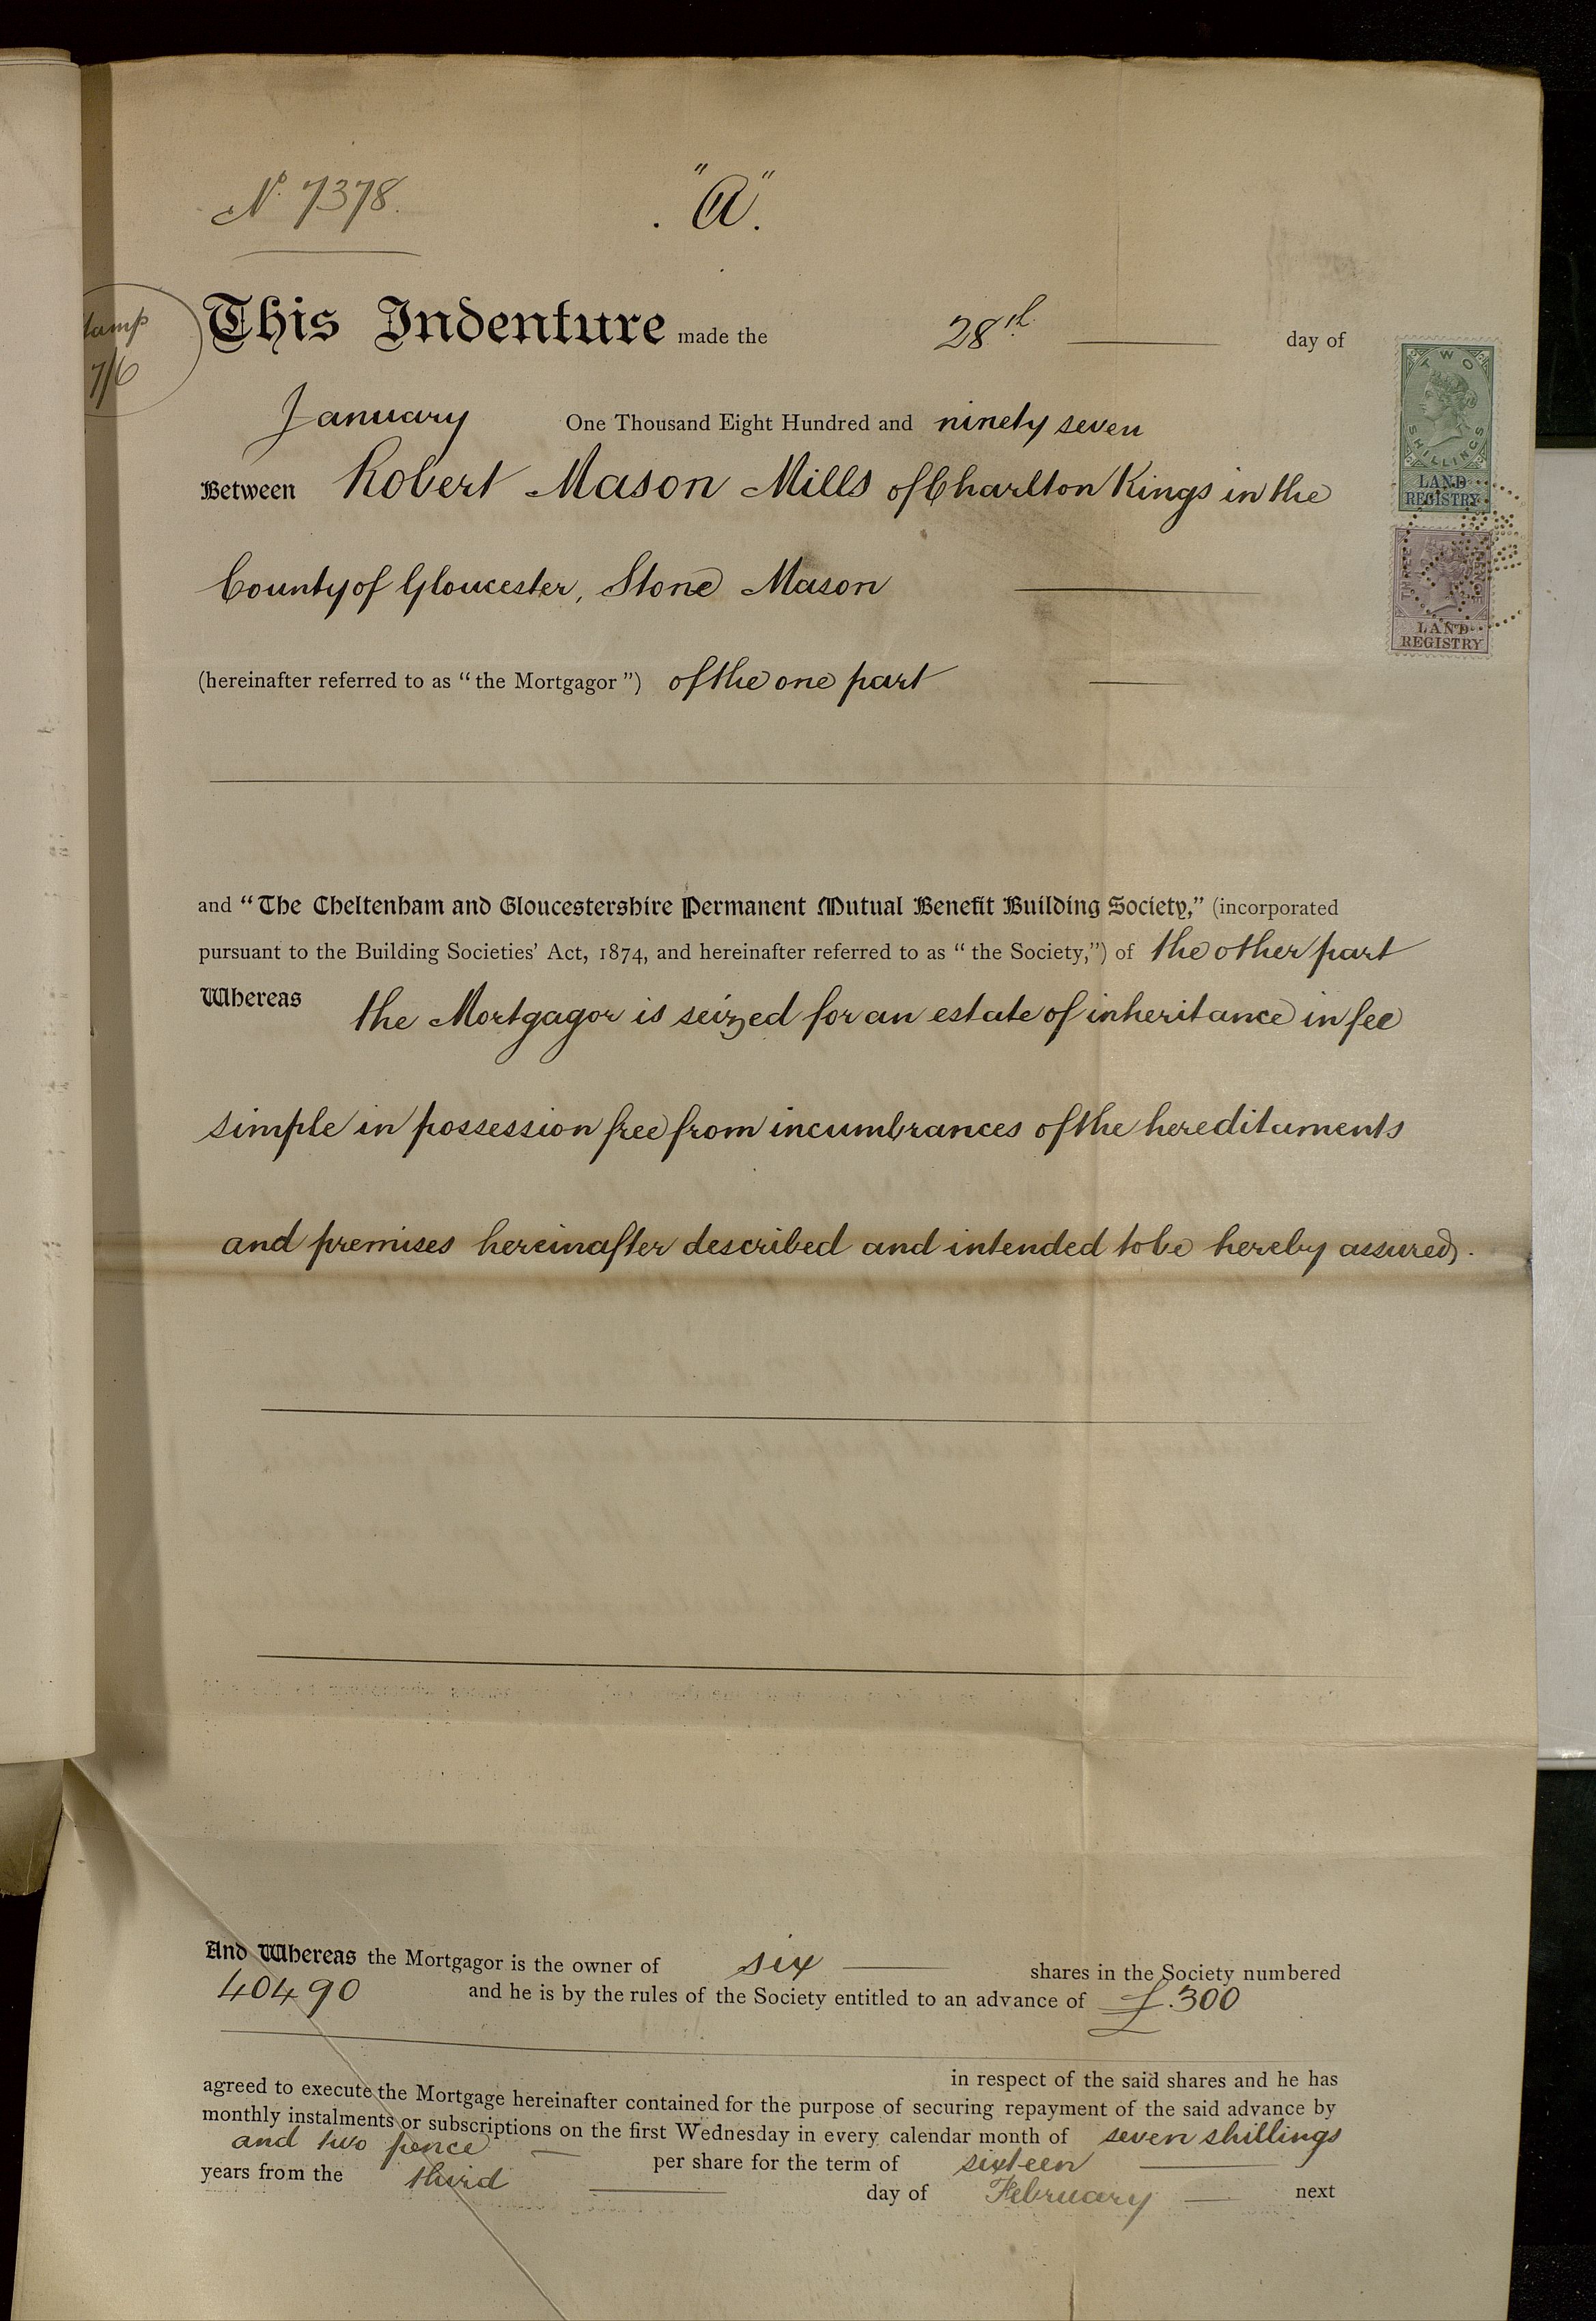 No. 7378.
"A".
This Indenture made the 28th day of
January One Thousand Eight Hundred and ninety seven
Between Robert Mason Mills of Charlton Kings in the
County of Gloucester, Stone Mason
(hereinafter referred to as "the Mortgagor") of the one part
and "The Cheltenham and Gloucestershire Permanent Mutual Benefit Building Society," (incorporated
pursuant to the Building Societies' Act, 1874, and hereinafter referred to as "the Society,") of the other part
Whereas the Mortgagor is seized for an estate of inheritance in fee
simple in possession free from incumbrances of the hereditaments
and premises hereinafter described and intended to be hereby assured.
And Whereas the Mortgagor is the owner of six shares in the Society numbered
40490 and he is by the rules of the Society entitled to an advance of £.300
in respect of the said shares and he has
agreed to execute the Mortgage hereinafter contained for the purpose of securing repayment of the said advance by
monthly instalments or subscriptions on the first Wednesday in every calendar month of seven shillings
and two pence per share for the term of sixteen
years from the third day of February next
tamp
7/6
TWO
SHILLINGS
LAND
REGISTRY
LAND
REGISTRY